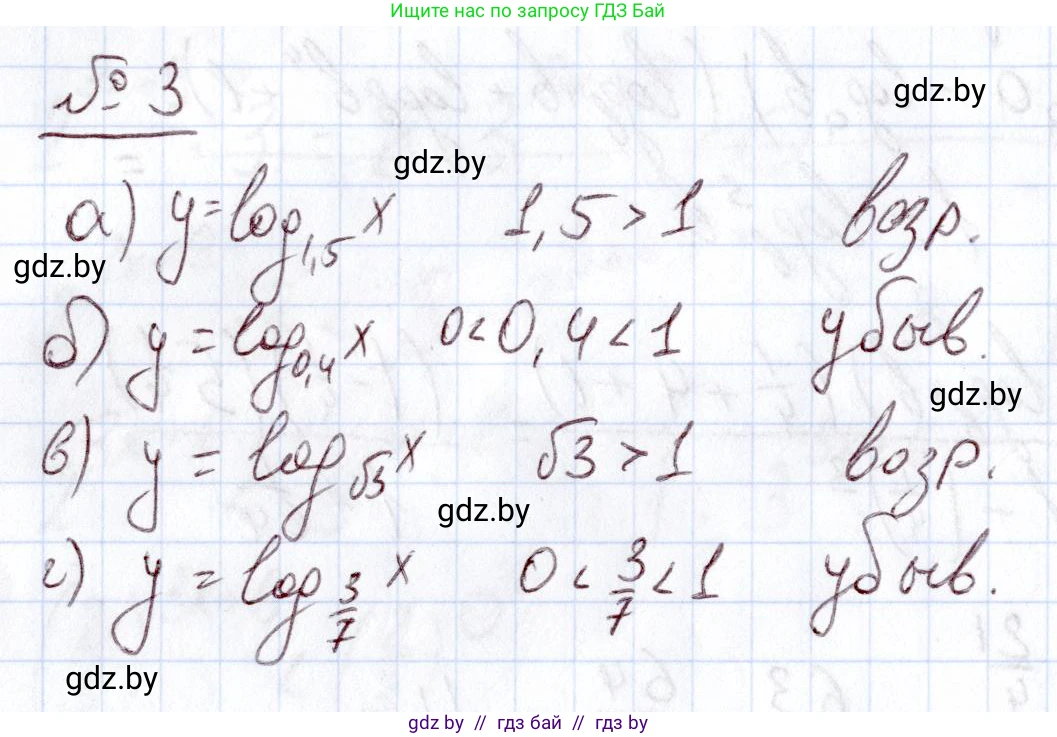 Ищите нас по запросу ГДЗ Бай
№ 3
gdz.by
gdz.by
а) y = log_{1,5} x 1,5 > 1 возр.
gdz.by
б) y = log_{0,4} x 0 < 0,4 < 1 убыв.
gdz.by
в) y = log_{√3} x √3 > 1 возр.
gdz.by
г) y = log_{3/7} x 0 < 3/7 < 1 убыв.
gdz.by
gdz.by // гдз бай // гдз by